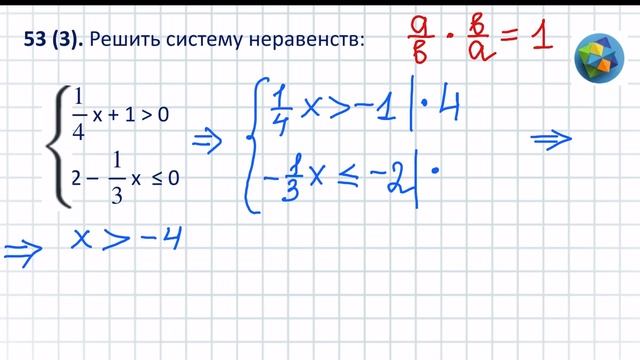 53 (3). Решить систему неравенств:
a/b · b/a = 1
1/4 x + 1 > 0
2 – 1/3 x ≤ 0
⇒
1/4 x > -1 | · 4
-1/3 x ≤ -2 | ·
⇒
⇒ x > -4